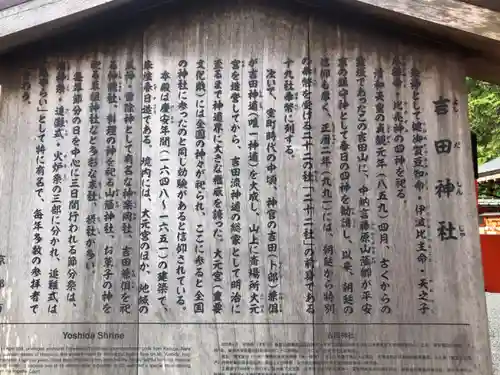 吉田神社
よしだじんじゃ
祭神として健御賀豆知命・伊波比主命・天之子
八根命・比売神の四神を祀る。
清和天皇の貞観元年（八五九）四月、古くからの
霊域であったこの吉田山に、中納言藤原山蔭卿が平安
京の鎮守神として春日の四神を勧請し、以来、朝廷の
信仰も篤く、正暦二年（九九一）には、朝廷から特別
の奉幣を受ける二十二の社「二十二社」の前身である
十九社奉幣に列する。
次いで、室町時代の中頃、神官の吉田（卜部）兼倶
が吉田神道（唯一神道）を大成し、山上に斎場所大元
宮を造営してから、吉田流神道の総家として明治に
至るまで神道界に大きな権威を誇った。大元宮（重要
文化財）には全国の神々が祀られ、ここに参ると全国
の神社に参ったのと同じ効験があると信仰されている。
本殿は慶安年間（一六四八～一六五一）の建築で、
朱塗春日造である。境内には、大元宮のほか、地域の
神・雷除神として有名な神楽岡社、吉田兼倶を祀
る神龍社、料理の神を祀る山蔭神社、お菓子の神を
祀る菓祖神社など多彩な末社、摂社が多い。
毎年節分の日を中心に三日間行われる節分祭は、
神祭・追儺式・火炉祭の三部に分かれ、追儺式は
らい」として特に有名で、毎年多数の参拝者で
京都市
Yoshida Shrine
吉田神社